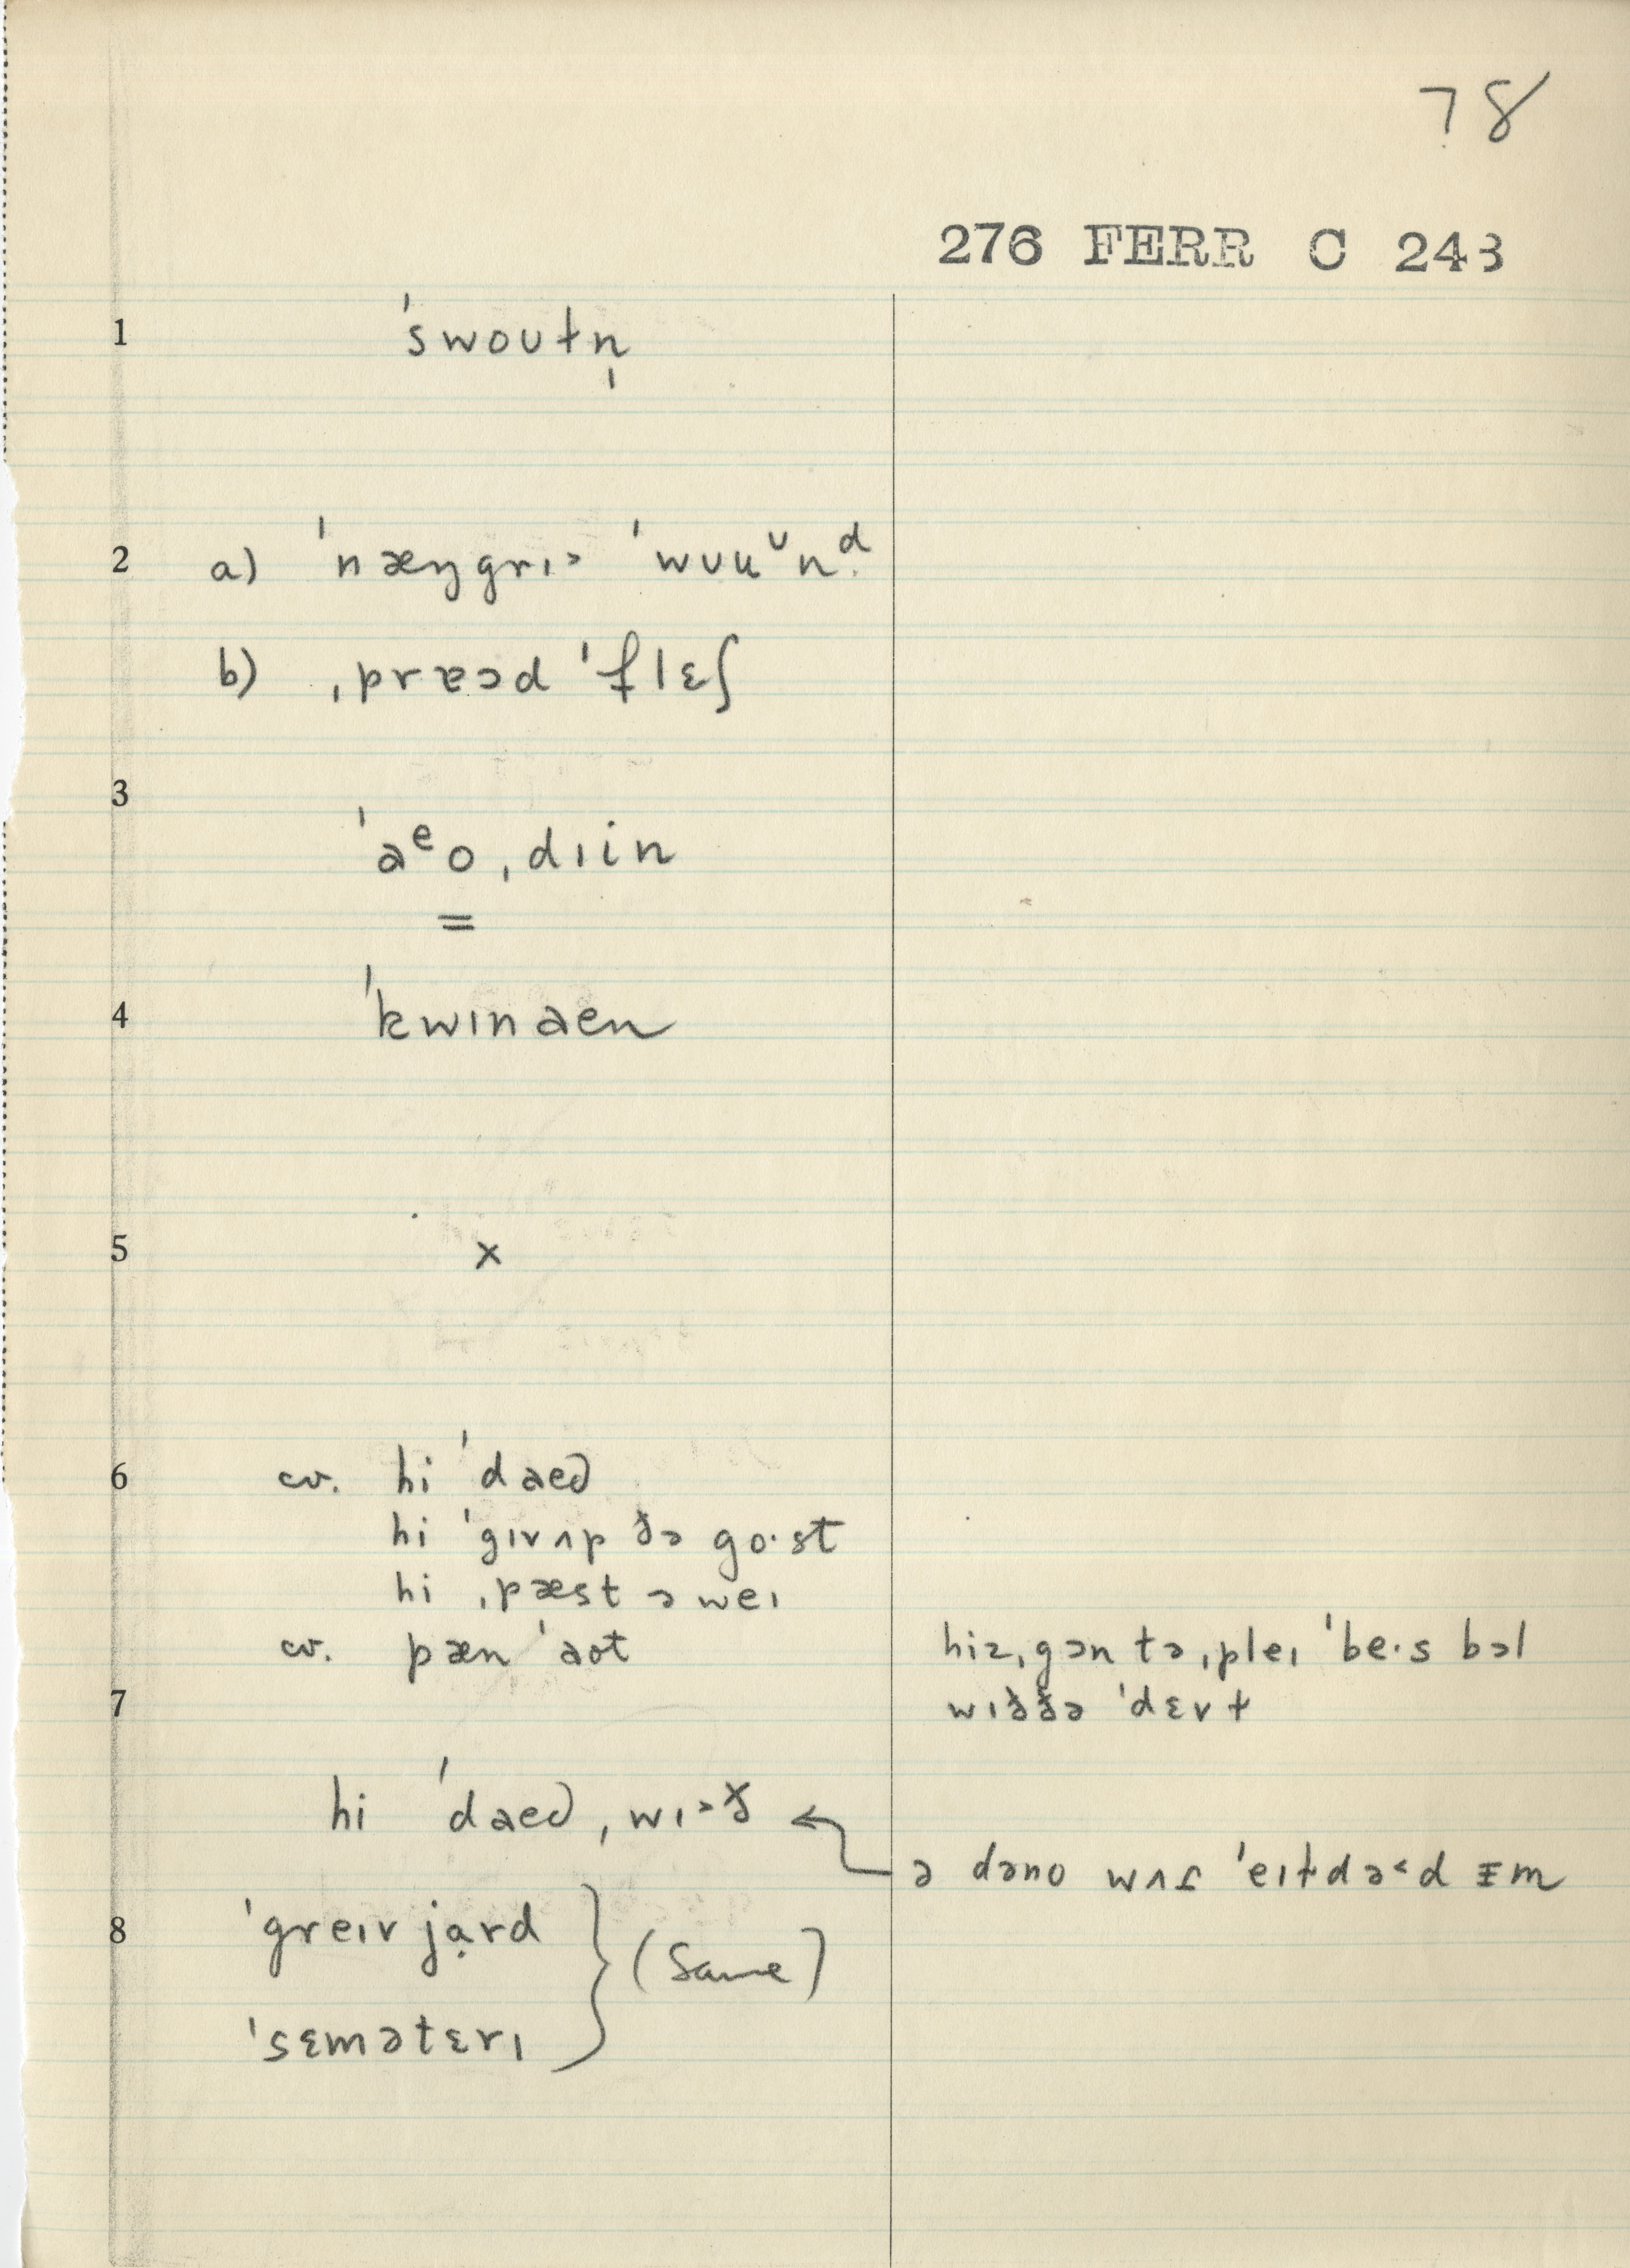 78
276 FERR C 243
1 ˈswoʊt̵n̩
2 a) ˈnæŋgrɪ˃ ˈwʊuᶷnᵈ̣
b) ˌpræɔd ˈf̵lɛʃ
3
ˈaᵉoˌdɪin
=
4 ˈkwɪnaen
5 x
6 cv. hi ˈdaed
hi ˈgɪvʌp ðə go·st
hi ˌpæst əweɪ
cv. pæn ˈaot hiz ˌgən tə ˌpleɪ ˈbe·s bɔl
7 wɪððə ˈdɛvɫ
hi ˈdaed ˌwɪ˃ð ← ə dəno wʌt ˈeɪɫdə˂d ɪ̵m
8 ˈgreɪv jɑ̣rd } (Same)
ˈsɛmətɛrɪ